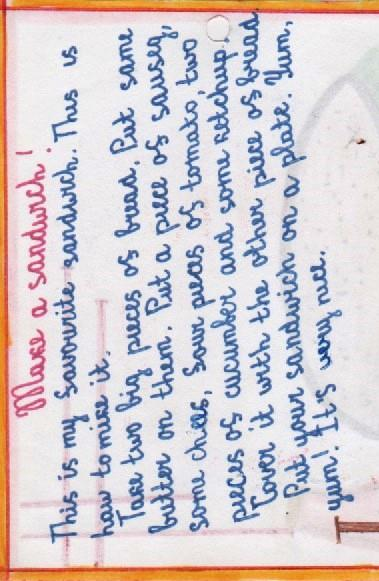 Make a sandwich!
This is my favourite sandwich. This is
haw to make it.
Take two big pieces of bread. Put same
butter on them. Put a piece of sauseg,
some chees, four pieces of tomato, two
pieces of cucumber and some ketchup.
Cover it with the other piece of bread.
Put your sandwich on a plate. Yum,
yum! It's very nice.